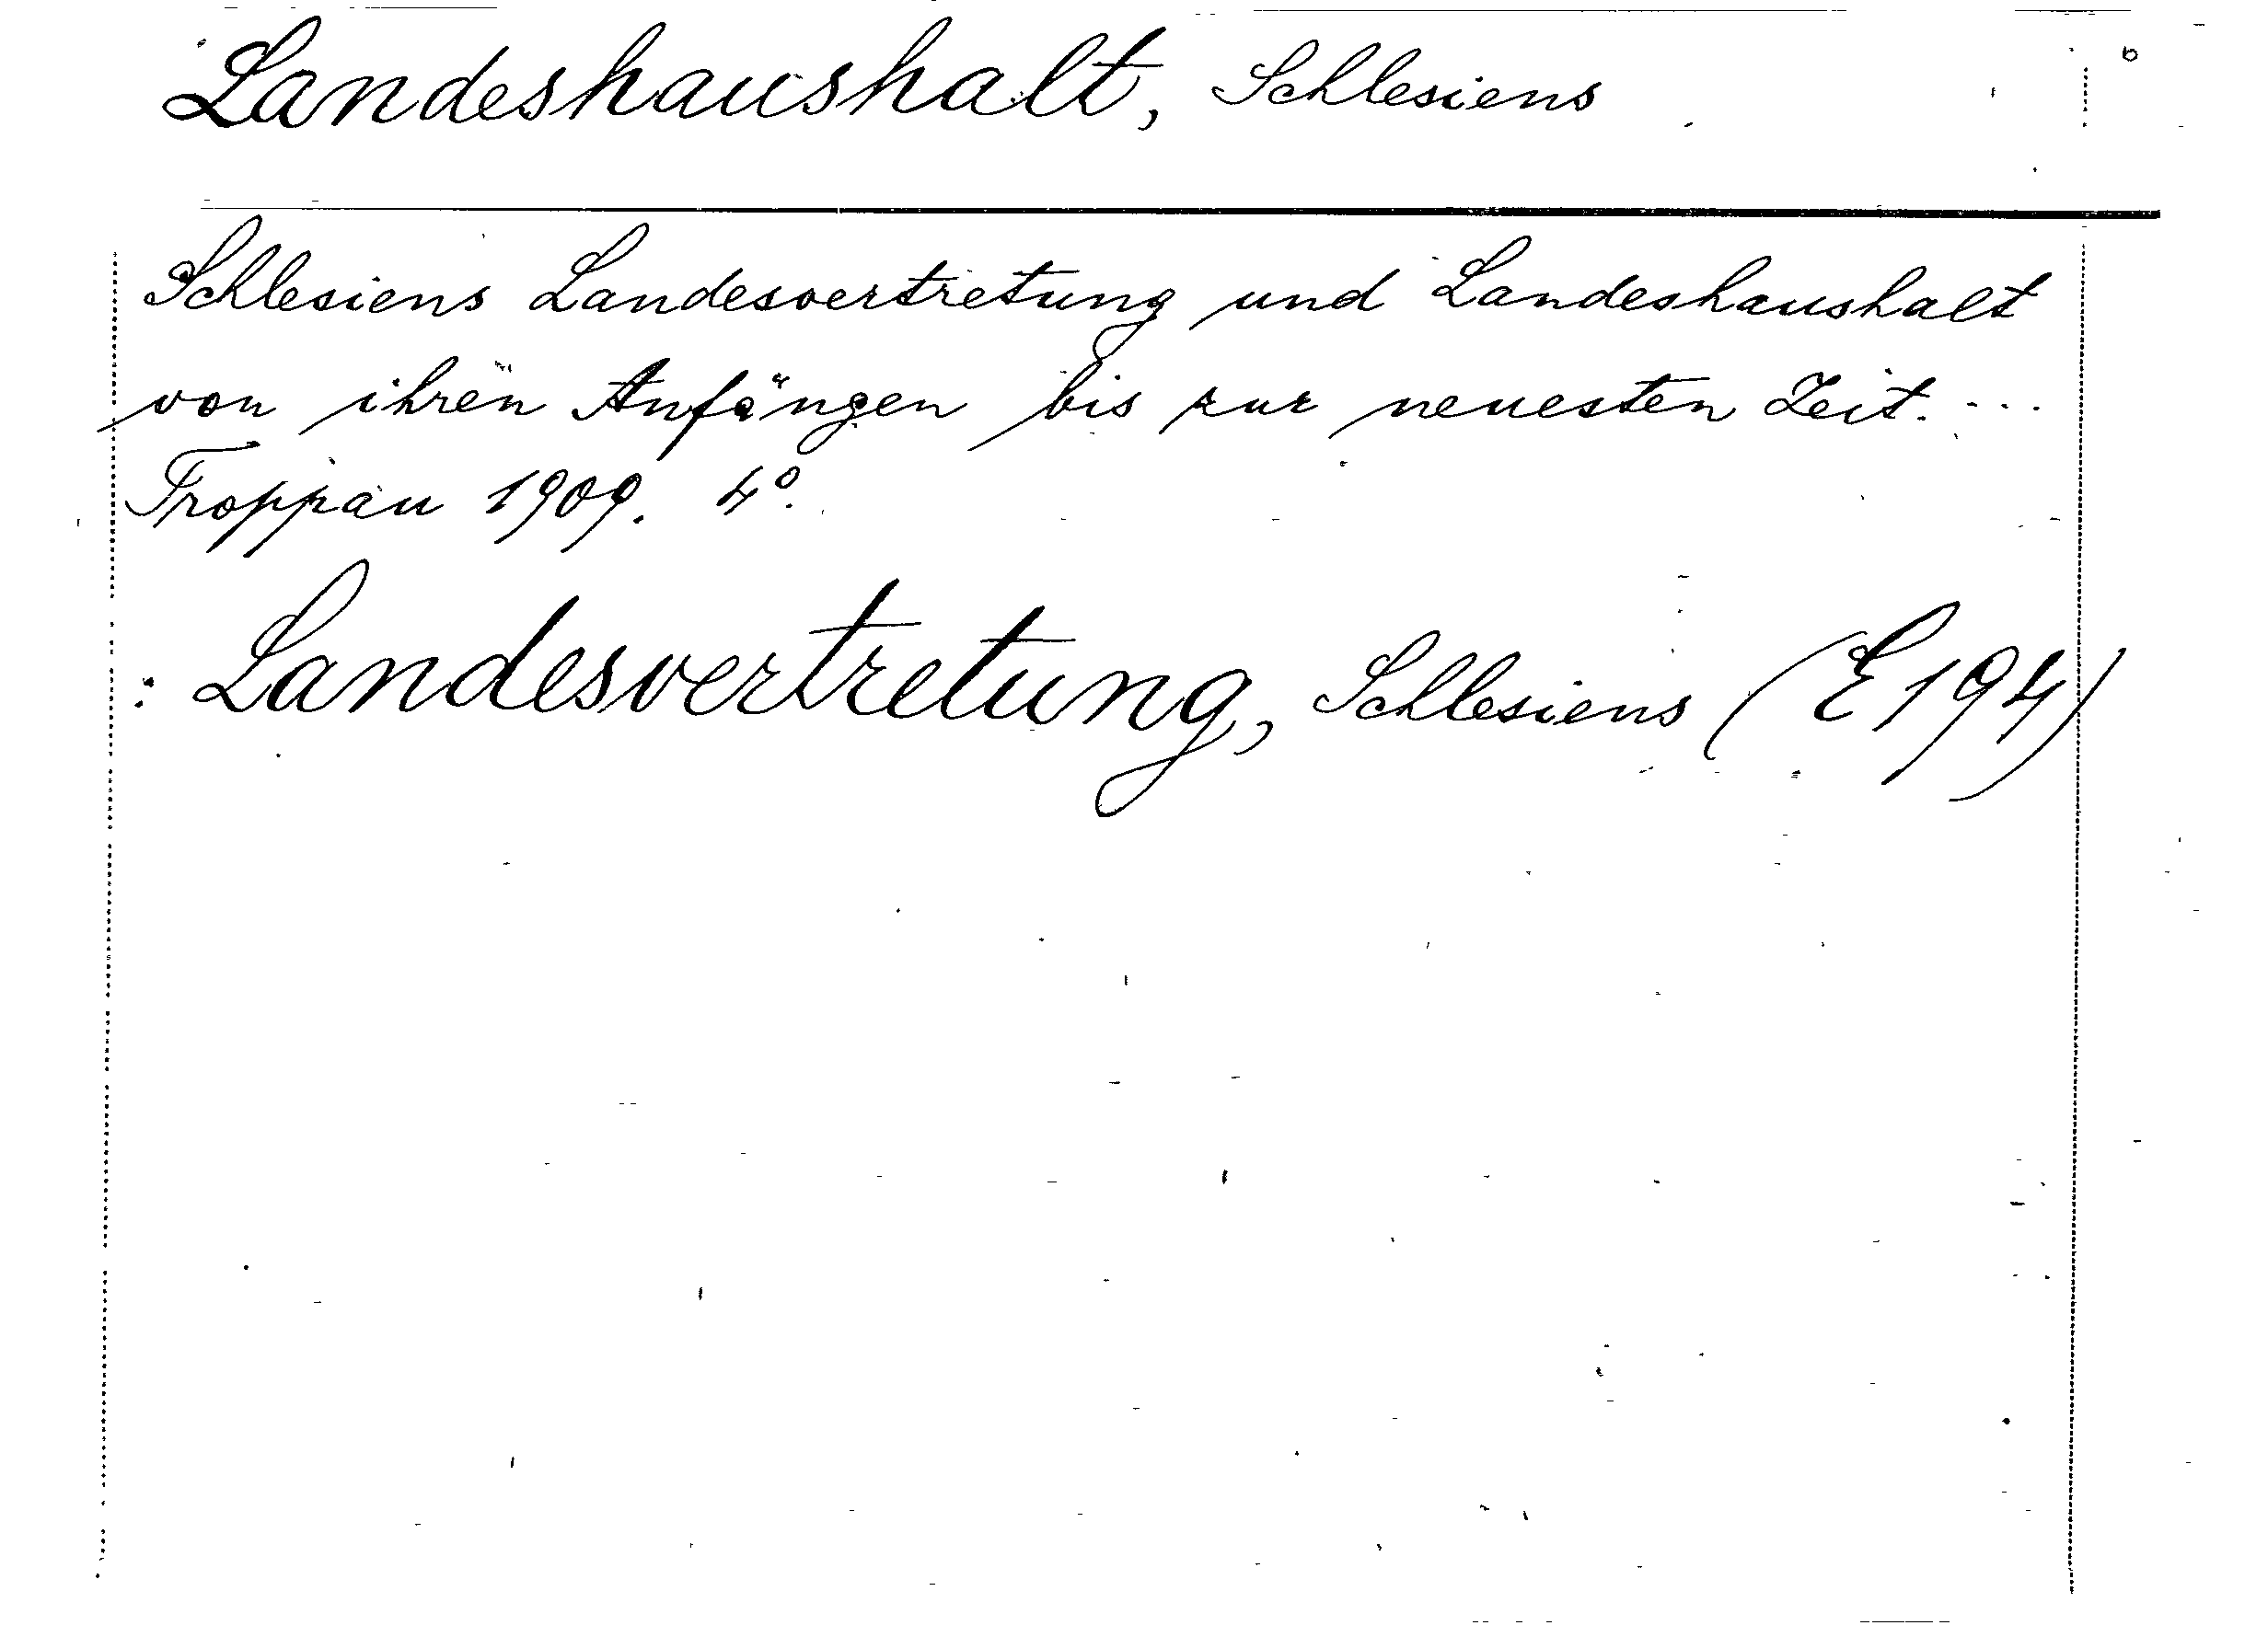 Landeshaushalt, Schlesiens
Schlesiens Landesvertretung und Landeshaushalt
von ihren Anfängen bis zur neuesten Zeit. ...
Troppau 1909. 4°.
: Landesvertretung, Schlesiens (E 194)